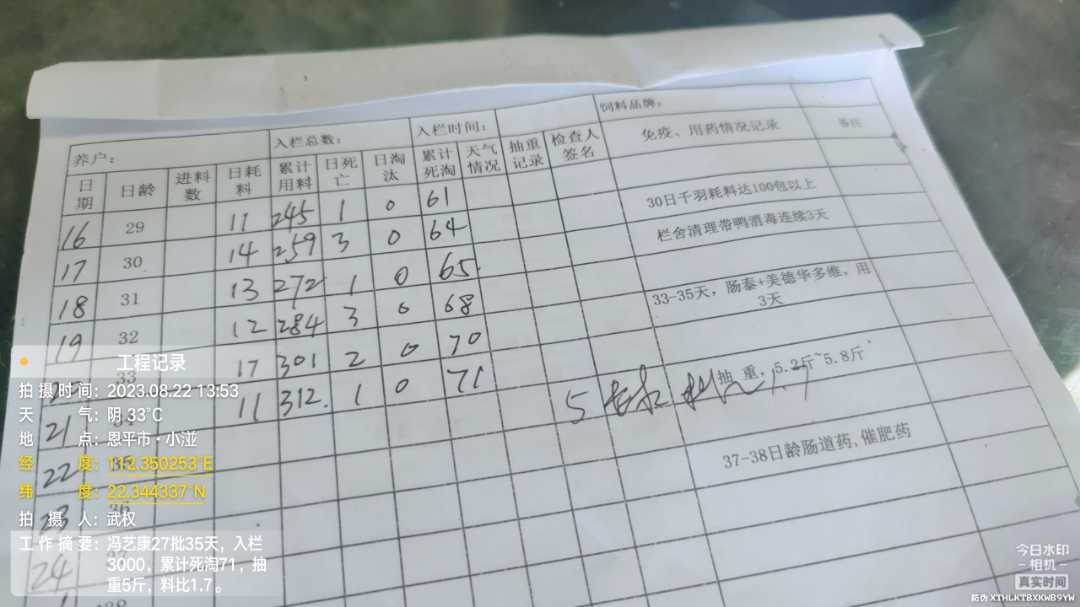 养户: 入栏总数: 入栏时间: 饲料品牌:
日期 日龄 进料数 日耗料 累计用料 日死亡 日淘汰 累计死淘 天气情况 抽重记录 检查人签名 免疫、用药情况记录 备注
16 29 11 245 1 0 61
30日千羽耗料达100包以上
17 30 14 259 3 0 64
栏舍清理带鸭消毒连续3天
18 31 13 272 1 0 65
19 32 12 284 3 0 68
33-35天，肠泰+美德华多维，用
3天
33 17 301 2 0 70
21 11 312 1 0 71
抽 重，5.2斤~5.8斤
5
22 35
37-38日龄肠道药,催肥药
23 36
24
38
工程记录
拍摄时间：2023.08.22 13:53
天 气：阴 33℃
地 点：恩平市·小湴
经 度：112.350253°E
纬 度：22.344337°N
拍 摄 人：武权
工作摘要：冯艺康27批35天，入栏
3000，累计死淘71，抽
重5斤，料比1.7。
今日水印
相机
真实时间
防伪 XTHLKTBXKWB9YW